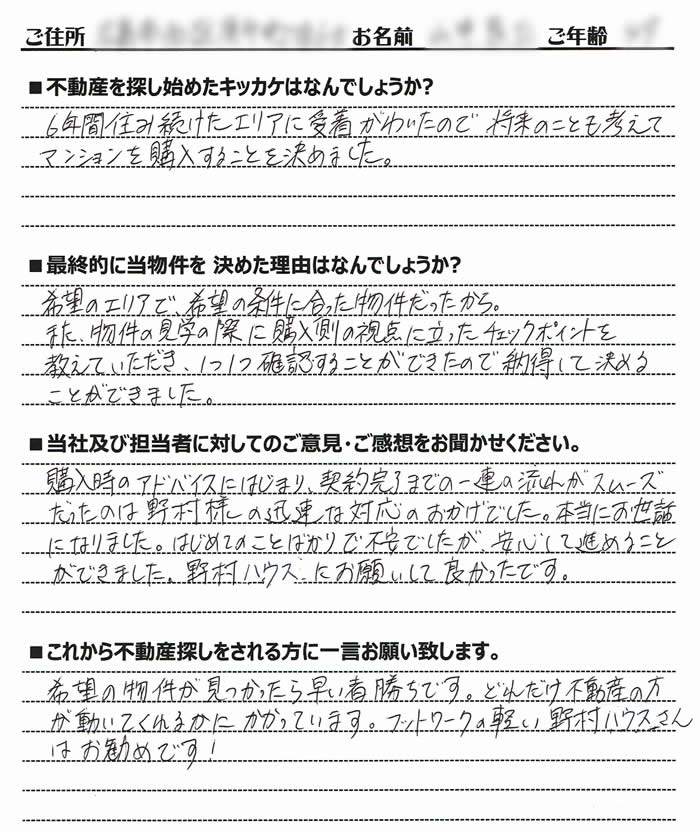 ご住所 お名前 ご年齢
■不動産を探し始めたキッカケはなんでしょうか?
6年間住み続けたエリアに愛着がわいたので 将来のことも考えて
マンションを購入することを決めました。
■最終的に当物件を 決めた理由はなんでしょうか?
希望のエリアで、希望の条件に合った物件だったから。
また、物件の見学の際に購入側の視点に立ったチェックポイントを
教えていただき、1つ1つ確認することができたので納得して決める
ことができました。
■当社及び担当者に対してのご意見・ご感想をお聞かせください。
購入時のアドバイスにはじまり、契約完了までの一連の流れがスムーズ
だったのは野村様の迅速な対応のおかげでした。本当にお世話
になりました。はじめてのことばかりで不安でしたが、安心して進めること
ができました。野村ハウスにお願いして良かったです。
■これから不動産探しをされる方に一言お願い致します。
希望の物件が見つかったら早い者勝ちです。どれだけ不動産の方
が動いてくれるかにかかっています。フットワークの軽い野村ハウスさん
はお勧めです!